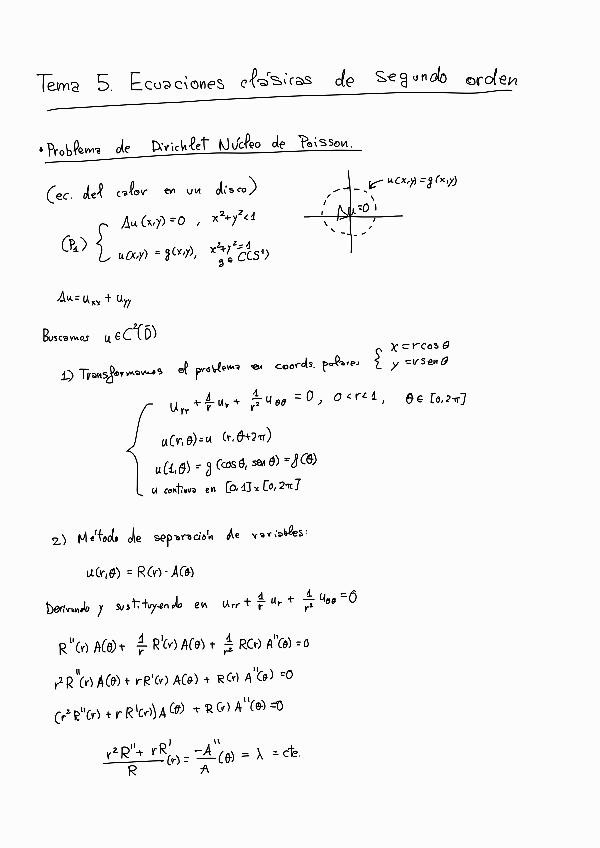 Tema 5. Ecuaciones clásicas de segundo orden
• Problema de Dirichlet Núcleo de Poisson.
(ec. del calor en un disco)
u(x,y) = g(x,y)
Δu=0
(P₁) { Δu(x,y)=0 , x²+y²<1
u(x,y) = g(x,y), x²+y²=1
g ∈ C(S¹)
Δu = uₓₓ + u_yy
Buscamos u ∈ C²(D̄)
1) Transformamos el problema en coords. polares { x = r cos θ
y = r sen θ
u_rr + 1/r u_r + 1/r² u_θθ = 0 , 0<r<1 , θ ∈ [0,2π]
u(r,θ) = u (r,θ+2π)
u(1,θ) = g (cos θ, sen θ) = f(θ)
u continua en [0,1] x [0,2π]
2) Método de separación de variables:
u(r,θ) = R(r) · A(θ)
Derivando y sustituyendo en u_rr + 1/r u_r + 1/r² u_θθ = 0
R''(r) A(θ) + 1/r R'(r) A(θ) + 1/r² R(r) A''(θ) = 0
r² R''(r) A(θ) + r R'(r) A(θ) + R(r) A''(θ) = 0
(r² R''(r) + r R'(r)) A(θ) + R(r) A''(θ) = 0
(r² R'' + r R')/R (r) = -A''/A (θ) = λ = cte.